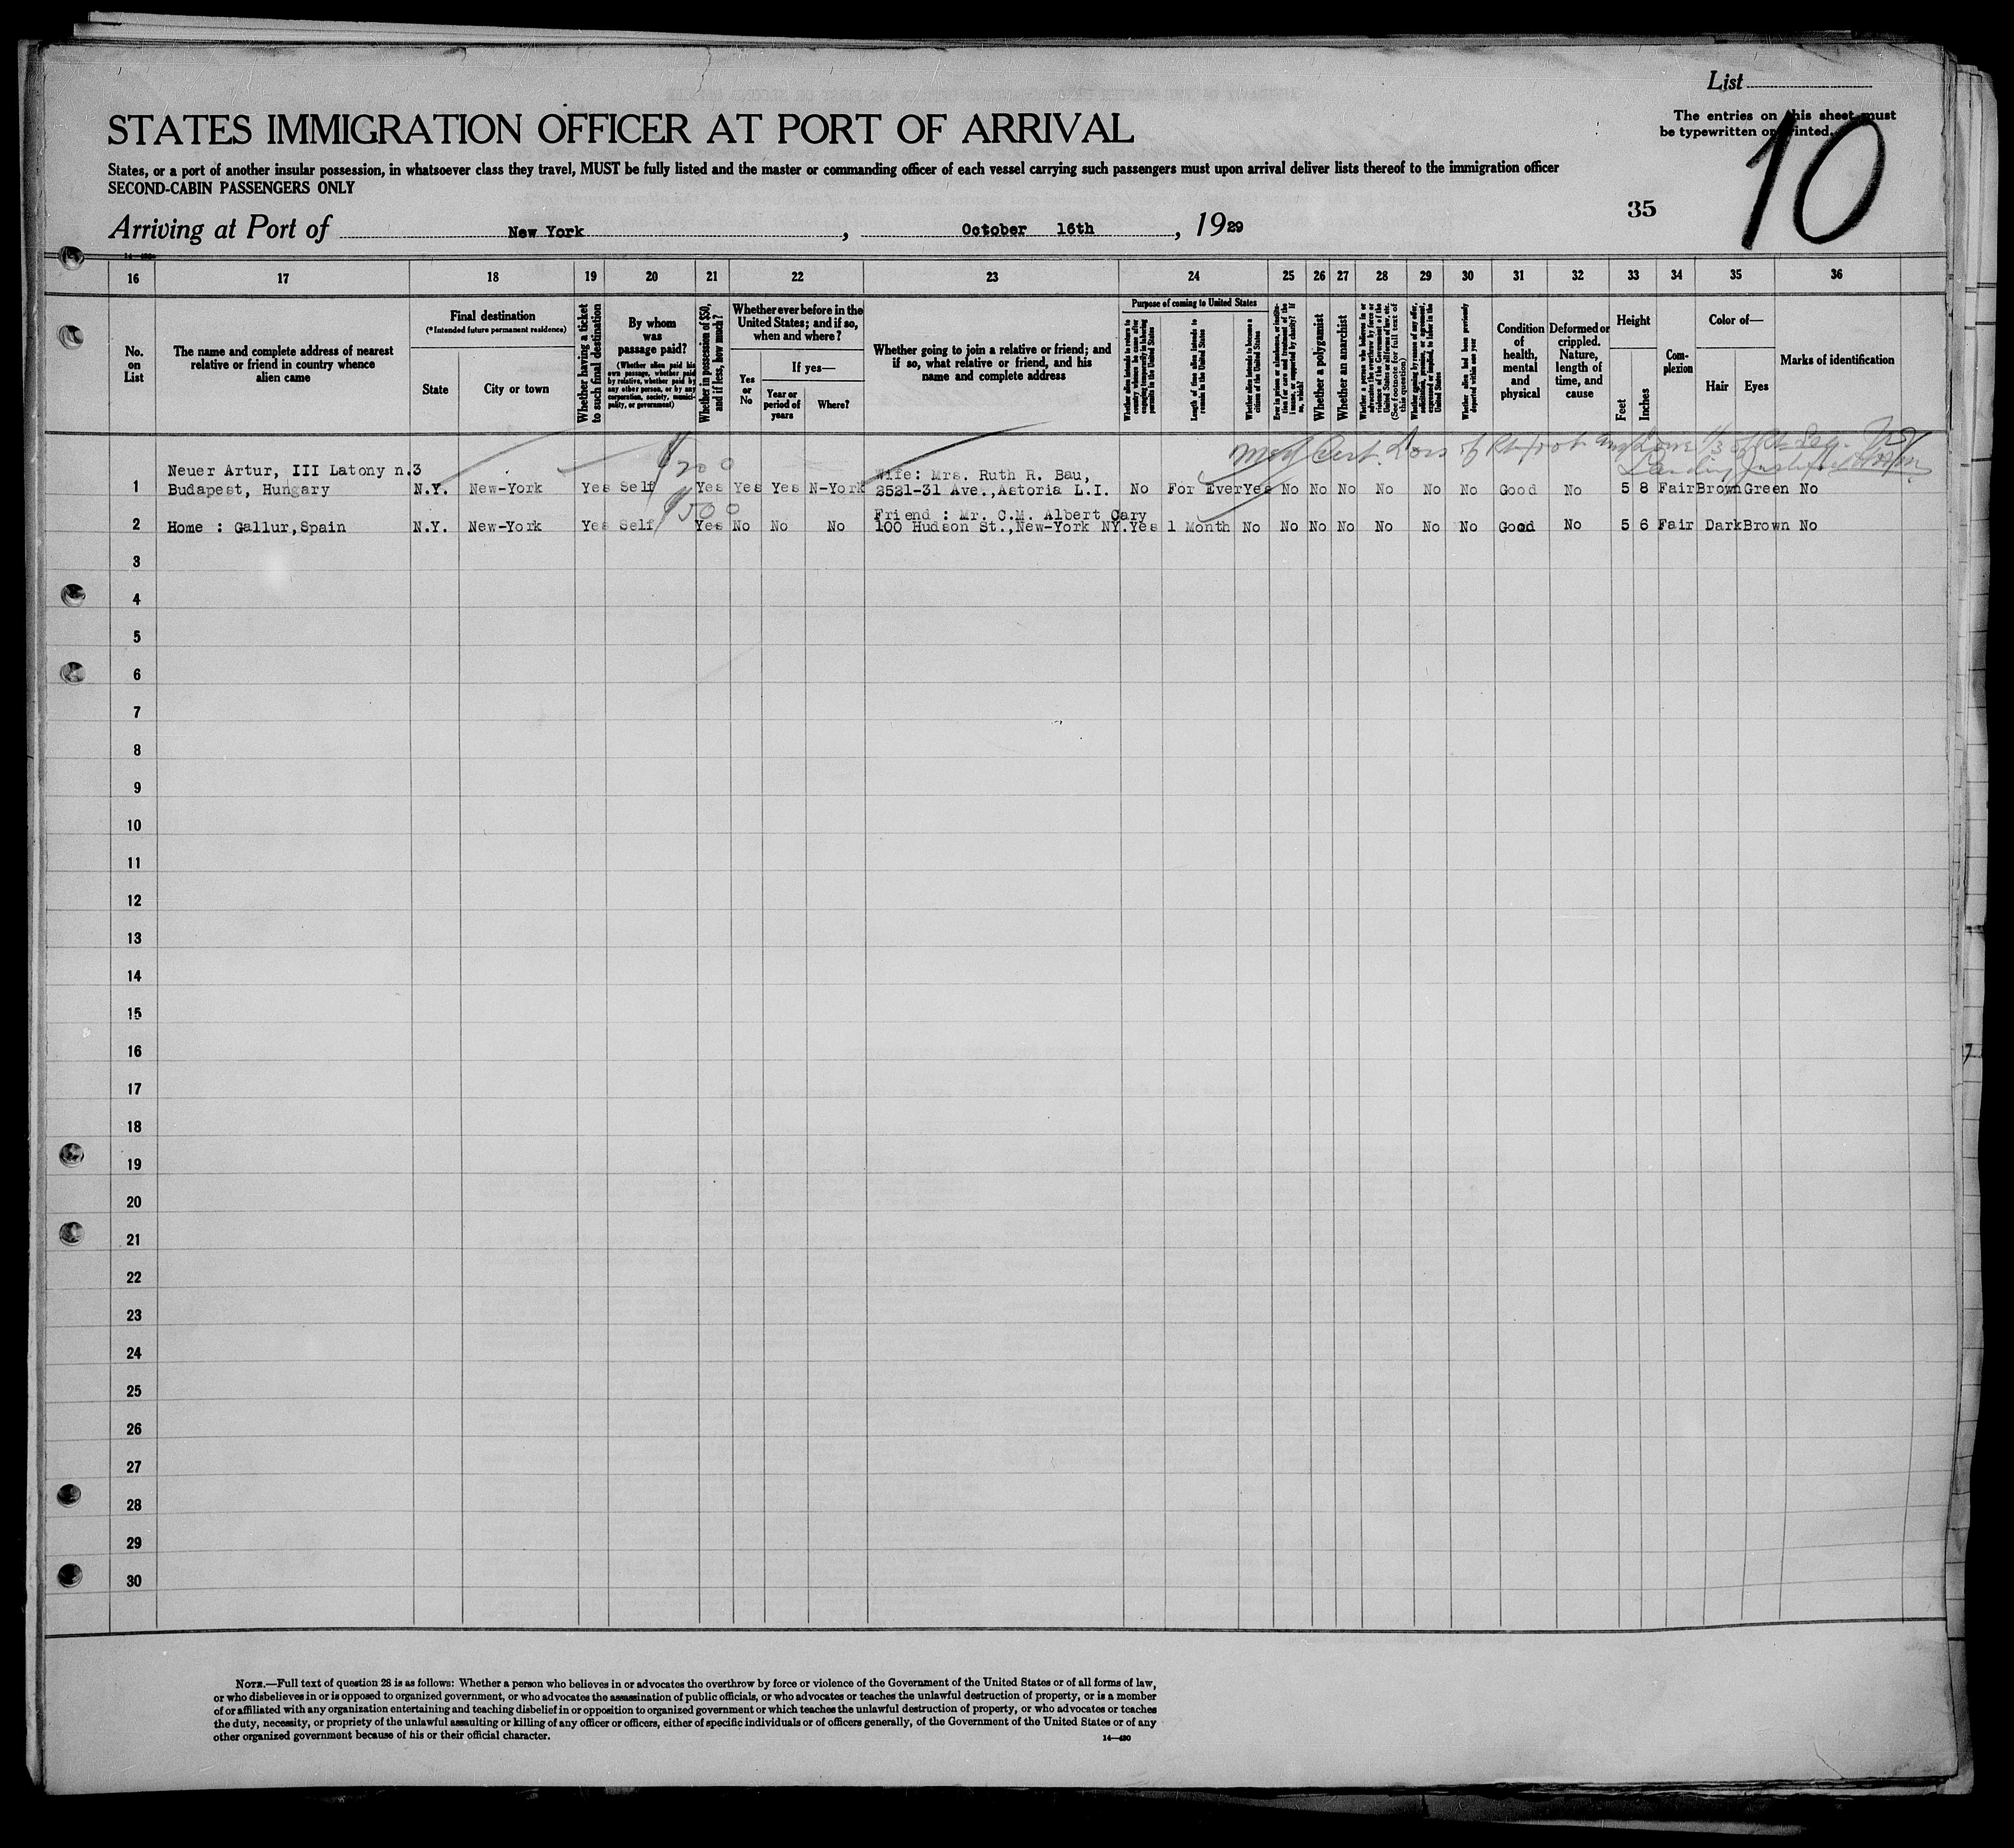 List
The entries on this sheet must
be typewritten or printed.
10
STATES IMMIGRATION OFFICER AT PORT OF ARRIVAL
States, or a port of another insular possession, in whatsoever class they travel, MUST be fully listed and the master or commanding officer of each vessel carrying such passengers must upon arrival deliver lists thereof to the immigration officer
SECOND-CABIN PASSENGERS ONLY
35
Arriving at Port of New York, October 16th, 1929
16 17 18 19 20 21 22 23 24 25 26 27 28 29 30 31 32 33 34 35 36
No. on List
The name and complete address of nearest relative or friend in country whence alien came
Final destination
(*Intended future permanent residence)
State
City or town
Whether having a ticket to such final destination
By whom was passage paid?
(Whether alien paid his own passage, whether paid by relative, whether paid by any other person, or by any corporation, society, municipality, or government)
Whether in possession of $50, and if less, how much?
Whether ever before in the United States; and if so, when and where?
Yes or No
If yes—
Year or period of years
Where?
Whether going to join a relative or friend; and if so, what relative or friend, and his name and complete address
Purpose of coming to United States
Whether alien intends to return to country whence he came after engaging temporarily in laboring pursuits in the United States
Length of time alien intends to remain in the United States
Whether alien intends to become a citizen of the United States
Ever in prison or almshouse, or institution for care and treatment of the insane, or supported by charity? If so, which?
Whether a polygamist
Whether an anarchist
Whether a person who believes in or advocates the overthrow by force or violence of the Government of the United States or all forms of law, etc. (See footnote for full text of this question)
Whether coming by reason of any offer, solicitation, promise, or agreement, expressed or implied, to labor in the United States
Whether alien had been previously deported within one year
Condition of health, mental and physical
Deformed or crippled. Nature, length of time, and cause
Height
Feet
Inches
Complexion
Color of—
Hair
Eyes
Marks of identification
Med Cert. Loss of Rt foot and lower 1/3 of Rt Leg.
$200
Neuer Artur, III Latony n.3 Wife: Mrs. Ruth R. Bau,
1 Budapest, Hungary N.Y. New-York Yes Self Yes Yes Yes N-York 2521-31 Ave.,Astoria L.I. No For Ever Yes No No No No No No Good No 5 8 Fair Brown Green No
$500
Friend : Mr. C.M. Albert Cary
2 Home : Gallur,Spain N.Y. New-York Yes Self Yes No No No 100 Hudson St.,New-York NY. Yes 1 Month No No No No No No No Good No 5 6 Fair Dark Brown No
3
4
5
6
7
8
9
10
11
12
13
14
15
16
17
18
19
20
21
22
23
24
25
26
27
28
29
30
NOTE.—Full text of question 28 is as follows: Whether a person who believes in or advocates the overthrow by force or violence of the Government of the United States or of all forms of law,
or who disbelieves in or is opposed to organized government, or who advocates the assassination of public officials, or who advocates or teaches the unlawful destruction of property, or is a member
of or affiliated with any organization entertaining and teaching disbelief in or opposition to organized government or which teaches the unlawful destruction of property, or who advocates or teaches
the duty, necessity, or propriety of the unlawful assaulting or killing of any officer or officers, either of specific individuals or of officers generally, of the Government of the United States or of any
other organized government because of his or their official character.
14—430